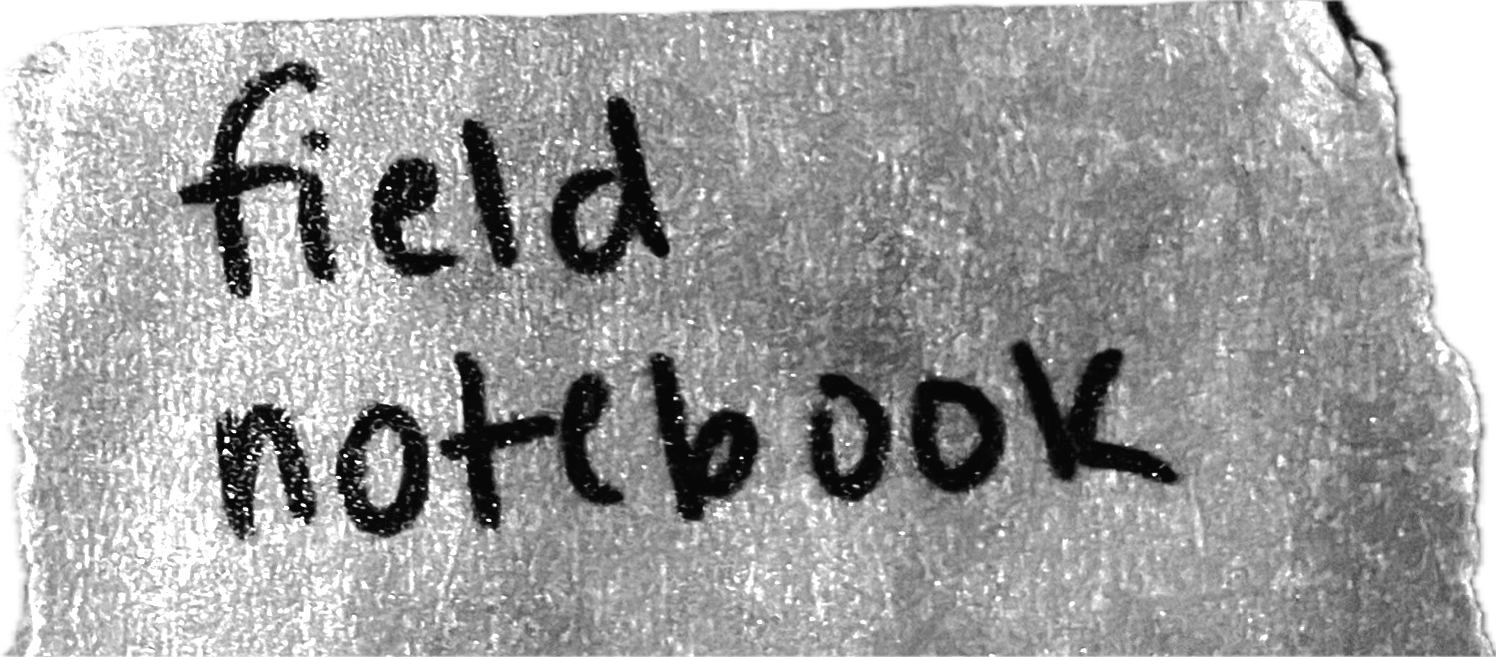 field
notebook